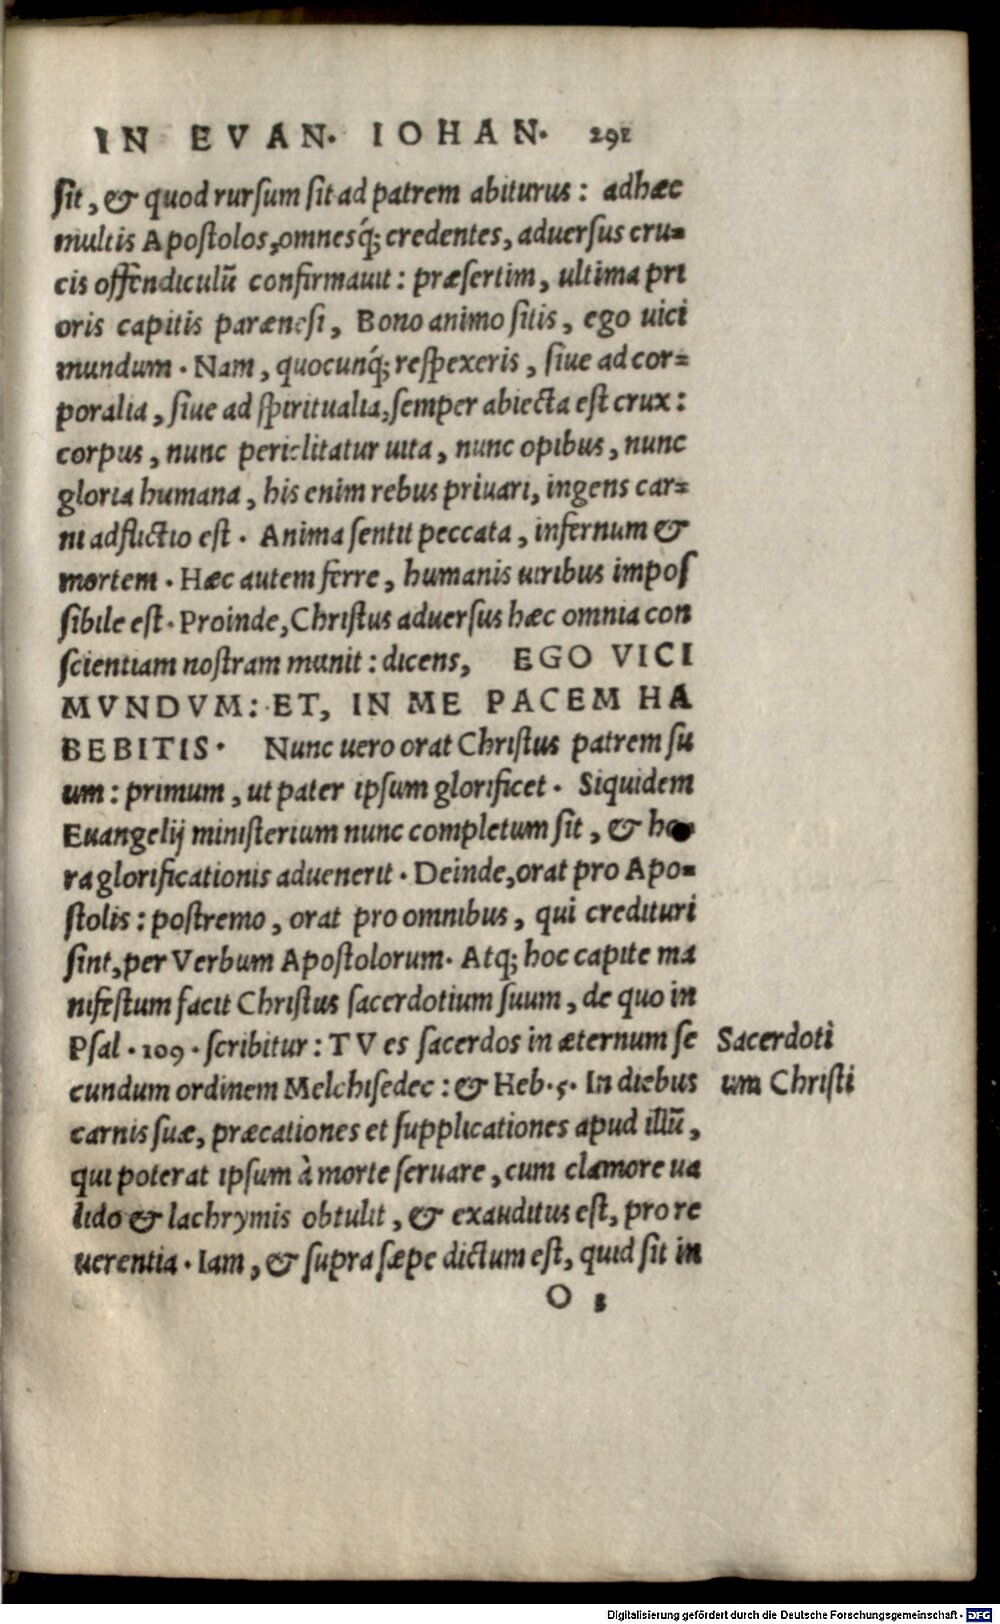 IN EVAN. IOHAN. 291
sit, & quod rursum sit ad patrem abiturus: adhæc
multis Apostolos, omnesq́; credentes, aduersus cru-
cis offendiculū confirmauit: præsertim, ultima pri
oris capitis parænesi, Bono animo sitis, ego uici
mundum. Nam, quocunq́; respexeris, siue ad cor-
poralia, siue ad spiritualia, semper abiecta est crux:
corpus, nunc periclitatur uita, nunc opibus, nunc
gloria humana, his enim rebus priuari, ingens car-
ni adflictio est. Anima sentit peccata, infernum &
mortem. Hæc autem ferre, humanis uiribus impos
sibile est. Proinde, Christus aduersus hæc omnia con
scientiam nostram munit: dicens, EGO VICI
MVNDVM: ET, IN ME PACEM HA
BEBITIS. Nunc uero orat Christus patrem su
um: primum, ut pater ipsum glorificet. Siquidem
Euangelij ministerium nunc completum sit, & ho
ra glorificationis aduenerit. Deinde, orat pro Apo-
stolis: postremo, orat pro omnibus, qui credituri
sint, per Verbum Apostolorum. Atq; hoc capite ma
nifestum facit Christus sacerdotium suum, de quo in
Psal. 109. scribitur: TV es sacerdos in æternum se
cundum ordinem Melchisedec: & Heb. 5. In diebus
carnis suæ, præcationes et supplicationes apud illū,
qui poterat ipsum à morte seruare, cum clamore ua
lido & lachrymis obtulit, & exauditus est, pro re
uerentia. Iam, & supra sæpe dictum est, quid sit in
O 3
Sacerdoti
um Christi
Digitalisierung gefördert durch die Deutsche Forschungsgemeinschaft - DFG